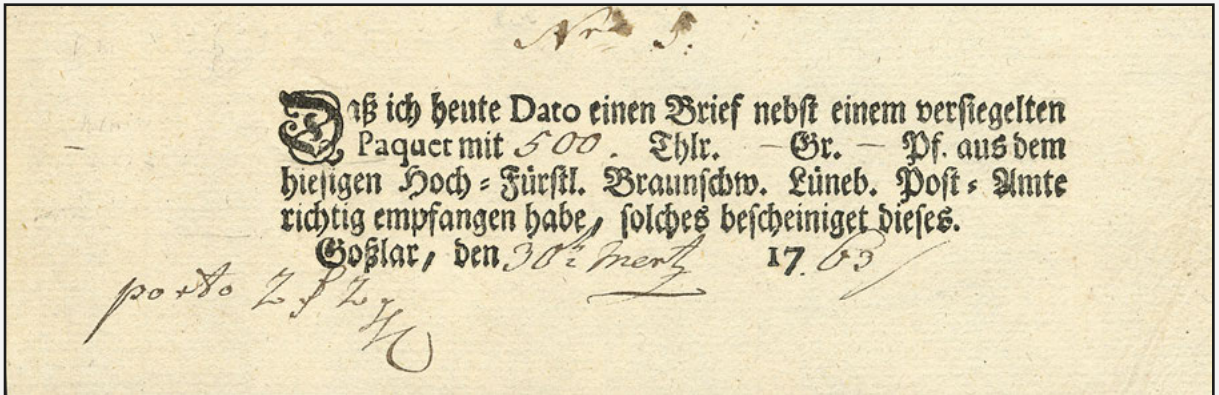 Nr. 5.
Daß ich heute Dato einen Brief nebst einem versiegelten
Paquet mit 500. Thlr. — Gr. — Pf. aus dem
hiesigen Hoch-Fürstl. Braunschw. Lüneb. Post-Amte
richtig empfangen habe, solches bescheiniget dieses.
Goßlar, den 30t Mertz 1763
porto 2 f 2